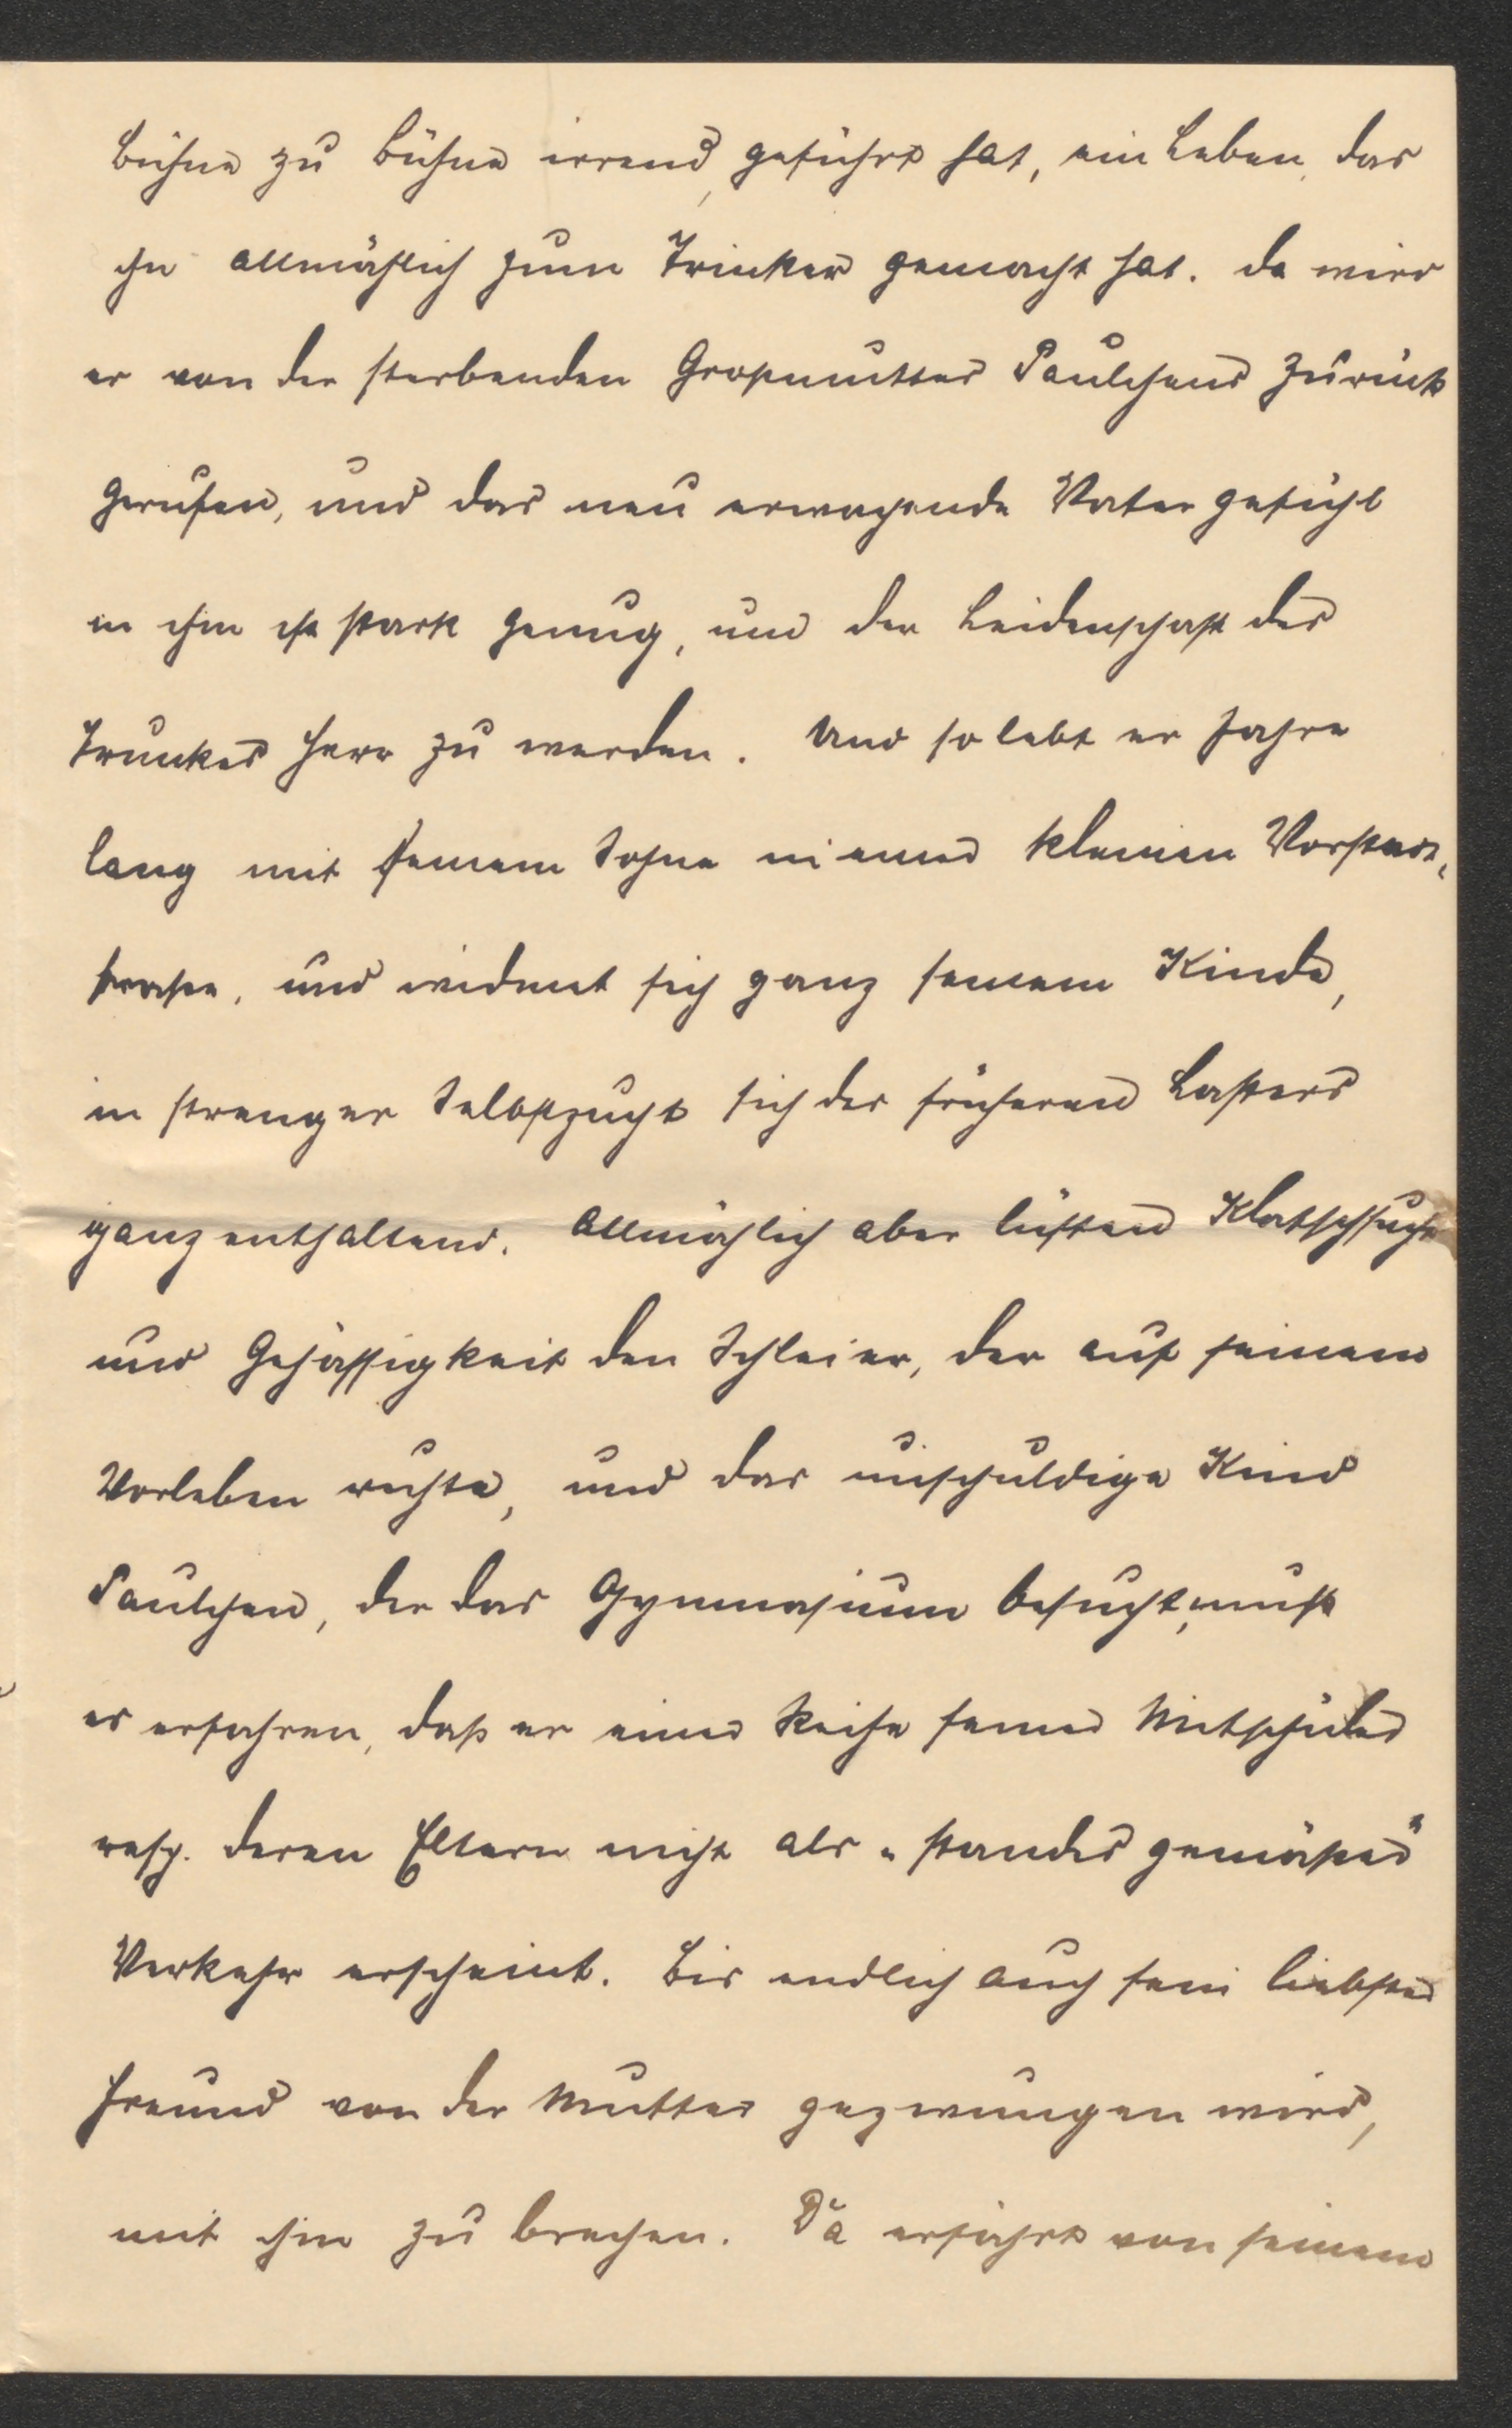 Bühne zu Bühne irrend, geführt hat, ein Leben, das
ihn allmählich zum Trinker gemacht hat. Da wird
er von der sterbenden Großmutter Paulchens zurück
gerufen, und das neu erwachende Vatergefühl
in ihm ist stark genug, um der Leidenschaft des
Trunkes Herr zu werden. Und so lebt er Jahre
lang mit seinem Sohne in einer kleinen Vorstadt,
strasse, und widmet sich ganz seinem Kinde,
in strenger Selbstzucht sich des früheren Lasters
ganz enthaltend. Allmählich aber lüften Klatschsucht
und Gehässigkeit den Schleier, der auf seinem
Vorleben ruhte, und das unschuldige Kind
Paulchen, der das Gymnasium besucht, muß
es erfahren, daß er einer Reihe seiner Mitschüler
resp. deren Eltern nicht als „standesgemäßer"
Verkehr erscheint. Bis endlich auch sein liebster
Freund von der Mutter gezwungen wird,
mit ihm zu brechen. Da erfährt von seinem